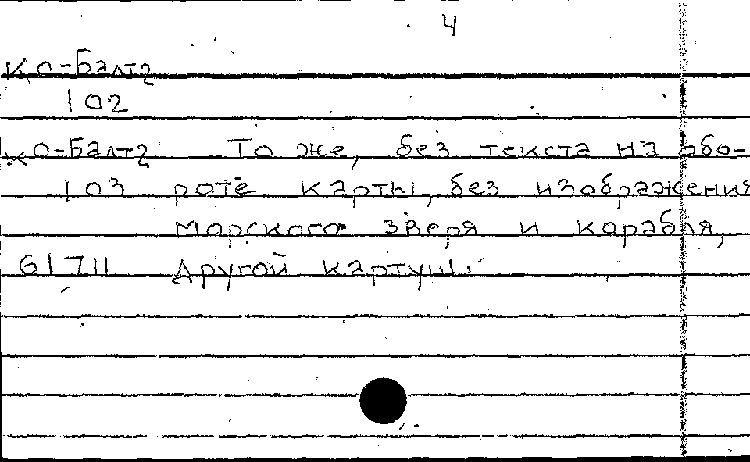 4
Ко-Балт2
102
Ко-Балт2 То же, без текста на обо-
103 роте карты, без изображения
морского зверя и корабля,
61711 Другой картуш.